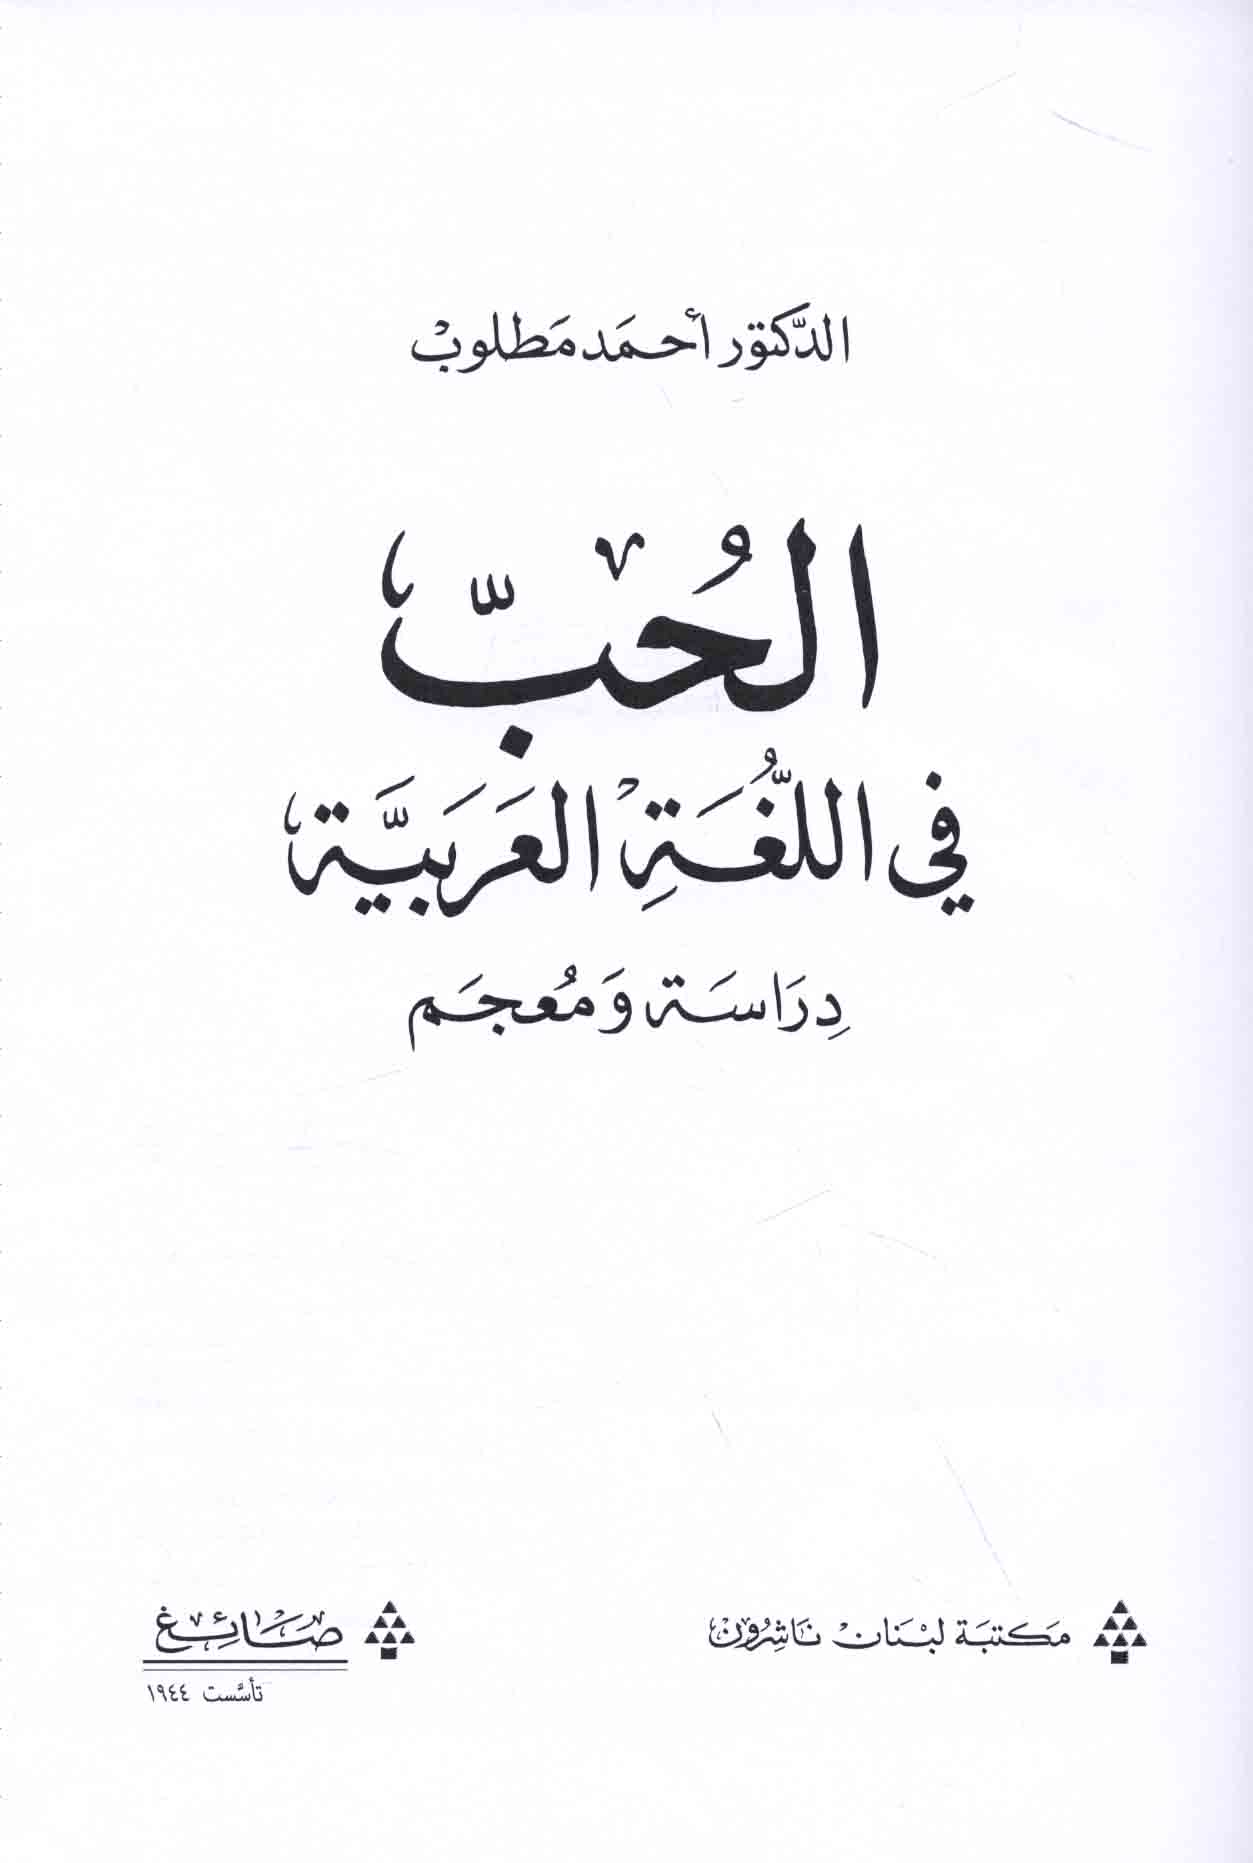 الدَّكتور أحمَد مَطلوبْ
الحُبّ
في اللُّغَةِ العَرَبيَّة
دِرَاسَة وَمُعجَم
مَكتبَة لبْنَان نَاشِرُون
صَائِغ
تأسَّست ١٩٤٤